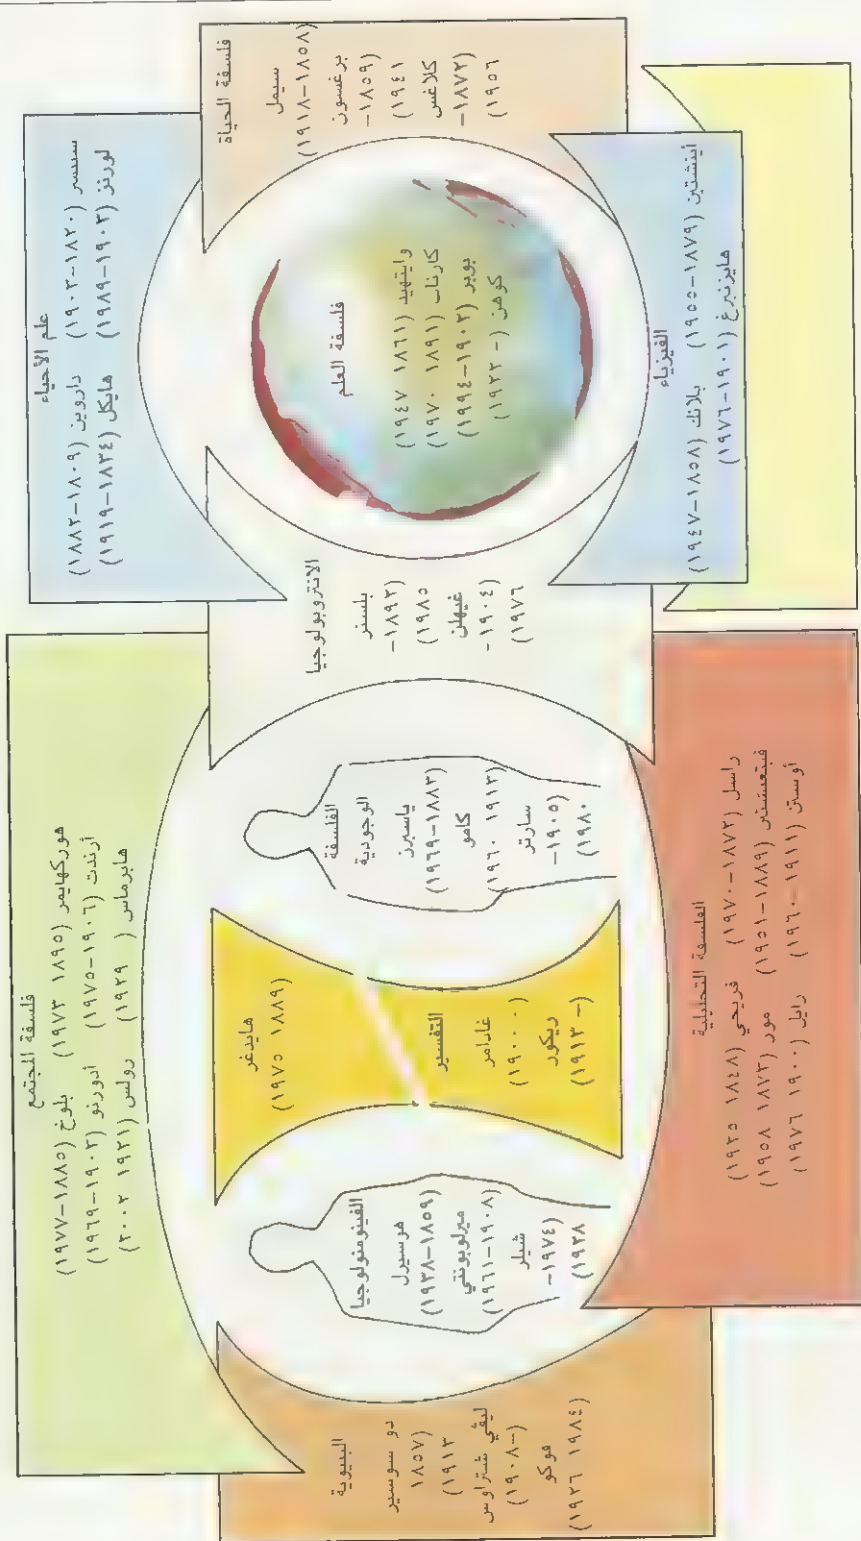 علم الأحياء
سبنسر (١٨٢٠-١٩٠٣) داروين (١٨٠٩-١٨٨٢)
لورنز (١٩٠٣-١٩٨٩) هايكل (١٨٣٤-١٩١٩)
فلسفة الحياة
سيمل
(١٨٥٨-١٩١٨)
برغسون
(١٨٥٩-
١٩٤١)
كلاغس
(١٨٧٢-
١٩٥٦)
فلسفة العلم
وايتهيد (١٨٦١ ١٩٤٧)
كارناب (١٨٩١ ١٩٧٠)
بوبر (١٩٠٢-١٩٩٤)
كوهن (- ١٩٢٢)
الفيزياء
أينشتين (١٨٧٩-١٩٥٥) بلانك (١٨٥٨-١٩٤٧)
هايزنبرغ (١٩٠١-١٩٧٦)
الانتروبولوجيا
بلسنر
(١٨٩٢-
١٩٨٥)
غيهلن
(١٩٠٤-
١٩٧٦)
فلسفة المجتمع
هوركهايمر (١٨٩٥ ١٩٧٣) بلوخ (١٨٨٥-١٩٧٧)
أرندت (١٩٠٦-١٩٧٥) أدورنو (١٩٠٣-١٩٦٩)
هابرماس (١٩٢٩ ) رولس (١٩٢١ ٢٠٠٢)
الفلسفة
الوجودية
ياسبرز
(١٨٨٣-١٩٦٩)
كامو
(١٩١٣ ١٩٦٠)
سارتر
(١٩٠٥-
١٩٨٠)
هايدغر
(١٨٨٩ ١٩٧٥)
التفسير
غادامر
(١٩٠٠- )
ريكور
(١٩١٣-)
الفينومنولوجيا
هوسيرل
(١٨٥٩-١٩٣٨)
ميرلوبونتي
(١٩٠٨-١٩٦١)
شيلر
(١٩٧٤-
١٩٢٨)
الفلسفة التحليلية
راسل (١٨٧٢-١٩٧٠) فريجي (١٨٤٨ ١٩٢٥)
فيتغنشتين (١٨٨٩-١٩٥١) مور (١٨٧٣ ١٩٥٨)
أوستن (١٩١١-١٩٦٠) رايل (١٩٠٠ ١٩٧٦)
البنيوية
دو سوسير
(١٨٥٧
١٩١٣)
ليفي شتراوس
(١٩٠٨-)
فوكو
(١٩٢٦ ١٩٨٤)